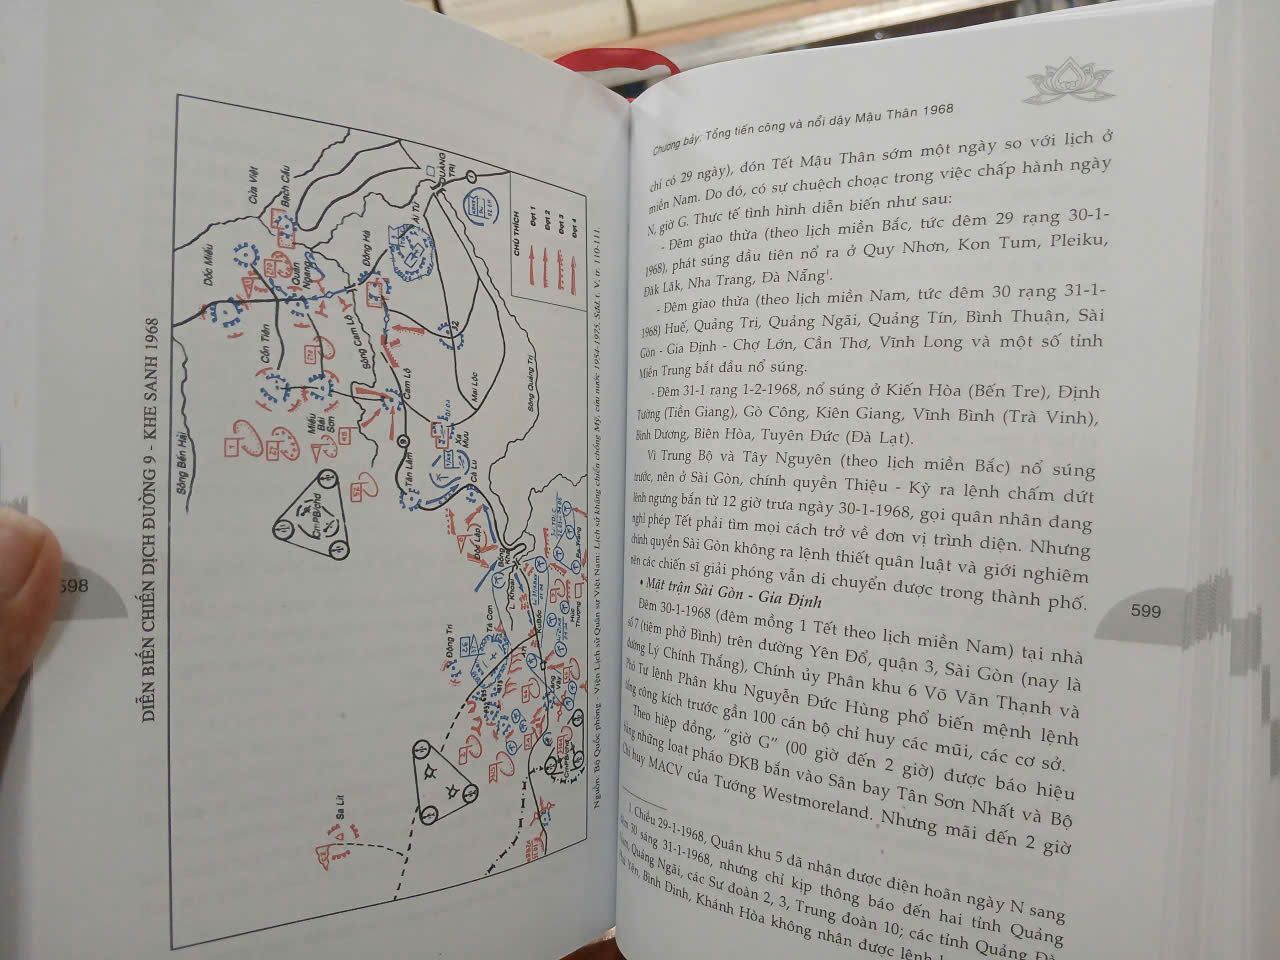 DIỄN BIẾN CHIẾN DỊCH ĐƯỜNG 9 - KHE SANH 1968
Cửa Việt
Bạch Câu
Dốc Miếu
Quán Ngang
Cồn Tiên
Miếu Bái Sơn
Sông Bến Hải
Sông Cam Lộ
Đông Hà
Ái Tử
QUẢNG TRỊ
1
Cam Lộ
Mai Lộc
Sông Quảng Trị
Tân Lâm
9
Cà Lu
Xa Mưu
Động Tri
Tà Cơn
Sa Lit
CHÚ THÍCH
Đợt 1
Đợt 2
Đợt 3
Đợt 4
Nguồn: Bộ Quốc phòng - Viện Lịch sử Quân sự Việt Nam: Lịch sử kháng chiến chống Mỹ, cứu nước 1954-1975, Sđd, t. V, tr. 110-111.
598
Chương bảy: Tổng tiến công và nổi dậy Mậu Thân 1968
chỉ có 29 ngày), đón Tết Mậu Thân sớm một ngày so với lịch ở
miền Nam. Do đó, có sự chuệch choạc trong việc chấp hành ngày
N, giờ G. Thực tế tình hình diễn biến như sau:
- Đêm giao thừa (theo lịch miền Bắc, tức đêm 29 rạng 30-1-
1968), phát súng đầu tiên nổ ra ở Quy Nhơn, Kon Tum, Pleiku,
Đăk Lăk, Nha Trang, Đà Nẵng¹.
- Đêm giao thừa (theo lịch miền Nam, tức đêm 30 rạng 31-1-
1968) Huế, Quảng Trị, Quảng Ngãi, Quảng Tín, Bình Thuận, Sài
Gòn - Gia Định - Chợ Lớn, Cần Thơ, Vĩnh Long và một số tỉnh
Miền Trung bắt đầu nổ súng.
- Đêm 31-1 rạng 1-2-1968, nổ súng ở Kiến Hòa (Bến Tre), Định
Tường (Tiền Giang), Gò Công, Kiên Giang, Vĩnh Bình (Trà Vinh),
Bình Dương, Biên Hòa, Tuyên Đức (Đà Lạt).
Vì Trung Bộ và Tây Nguyên (theo lịch miền Bắc) nổ súng
trước, nên ở Sài Gòn, chính quyền Thiệu - Kỳ ra lệnh chấm dứt
lệnh ngưng bắn từ 12 giờ trưa ngày 30-1-1968, gọi quân nhân đang
nghỉ phép Tết phải tìm mọi cách trở về đơn vị trình diện. Nhưng
chính quyền Sài Gòn không ra lệnh thiết quân luật và giới nghiêm
nên các chiến sĩ giải phóng vẫn di chuyển được trong thành phố.
• Mặt trận Sài Gòn - Gia Định
Đêm 30-1-1968 (đêm mồng 1 Tết theo lịch miền Nam) tại nhà
số 7 (tiệm phở Bình) trên đường Yên Đổ, quận 3, Sài Gòn (nay là
đường Lý Chính Thắng), Chính ủy Phân khu 6 Võ Văn Thạnh và
Phó Tư lệnh Phân khu Nguyễn Đức Hùng phổ biến mệnh lệnh
tổng công kích trước gần 100 cán bộ chỉ huy các mũi, các cơ sở.
Theo hiệp đồng, "giờ G" (00 giờ đến 2 giờ) được báo hiệu
bằng những loạt pháo ĐKB bắn vào Sân bay Tân Sơn Nhất và Bộ
Chỉ huy MACV của Tướng Westmoreland. Nhưng mãi đến 2 giờ
1. Chiều 29-1-1968, Quân khu 5 đã nhận được điện hoãn ngày N sang
đêm 30 sáng 31-1-1968, nhưng chỉ kịp thông báo đến hai tỉnh Quảng
Nam, Quảng Ngãi, các Sư đoàn 2, 3, Trung đoàn 10; các tỉnh Quảng Đà
Phú Yên, Bình Định, Khánh Hòa không nhận được lệnh
599